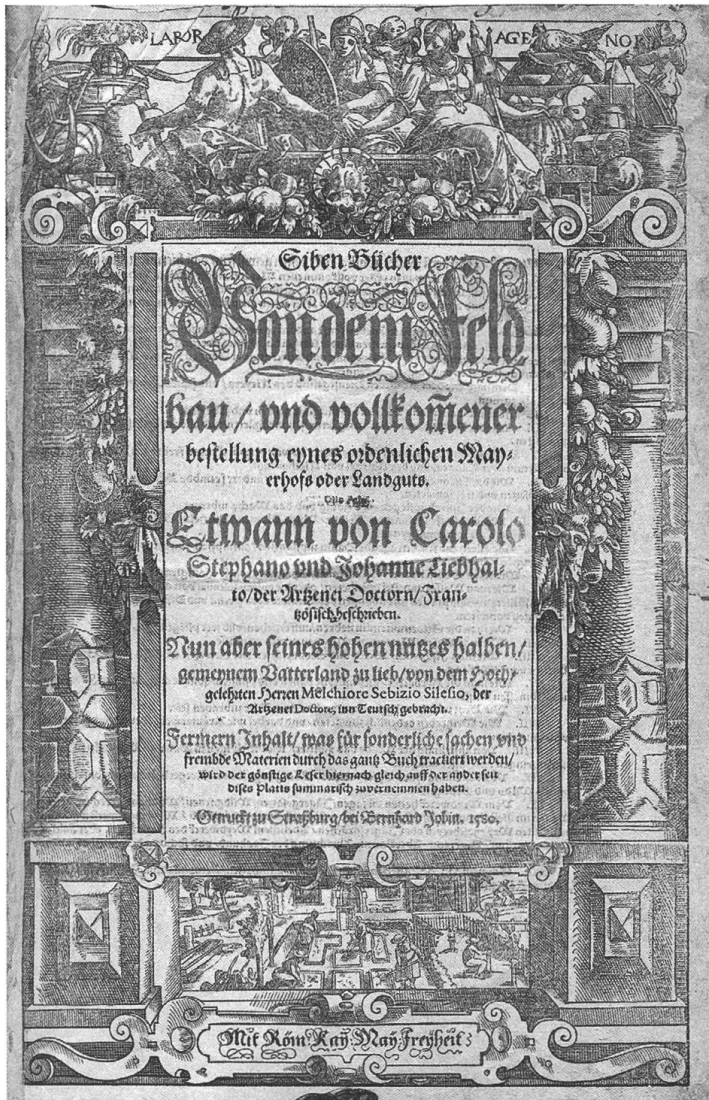 LABOR AGE NOR
Siben Bücher
Von dem Feld
bau / vnd vollkom̃ener
bestellung eynes ordenlichen May-
erhofs oder Landguts.
Etwann von Carolo
Stephano vnd Johanne Liebhal-
to / der Artzenei Doctorn / Fran-
tzösisch beschrieben.
Nun aber seines hohen nutzes halben /
gemeynem Vatterland zu lieb / von dem Hoch-
gelehrten Herren Melchiore Sebizio Silesio, der
Artzenei Doctore, inn Teutsch gebracht.
Fernern Inhalt / was für sonderliche sachen vnd
frembde Materien durch das gantz Buch tractiert werden /
wird der günstige Leser hiernach gleich auff der ander seit
dises Platts summarisch zuvernemmen haben.
Getruckt zu Straßburg / bei Bernhard Jobin. 1580.
Mit Röm. Kay. May. Freyheit